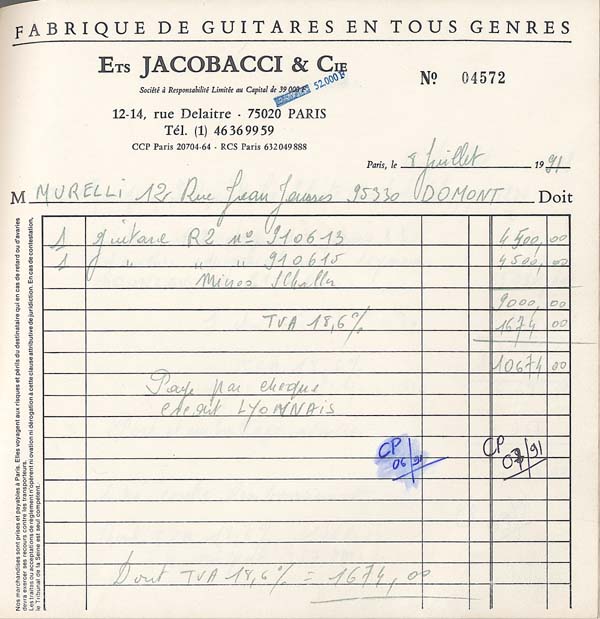 FABRIQUE DE GUITARES EN TOUS GENRES
ETS JACOBACCI & CIE
Société à Responsabilité Limitée au Capital de 39 000 F
52.000 F
Nº 04572
12-14, rue Delaitre · 75020 PARIS
Tél. (1) 46 36 99 59
CCP Paris 20704-64 · RCS Paris 632 049 888
Paris, le 8 Juillet 1991
M MURELLI 12, Rue Jean Jaures 95330 DOMONT Doit
1 guitare R2 nº 910613 4500,00
1 " " " 910615 4500,00
micros Schaller
9000,00
TVA 18,6% 1674 00
10674 00
Payé par cheque
credit LYONNAIS
CP 06/91
CP 07/91
Dont TVA 18,6% = 1674,00
Nos marchandises sont prises et payables à Paris. Elles voyagent aux risques et périls du destinataire qui en cas de retard ou d'avaries
devra exercer ses recours contre les transporteurs.
Les traites ou acceptations de règlement n'opèrent ni novation ni dérogation à cette clause attributive de juridiction. En cas de contestation,
le Tribunal de la Seine est seul compétent.